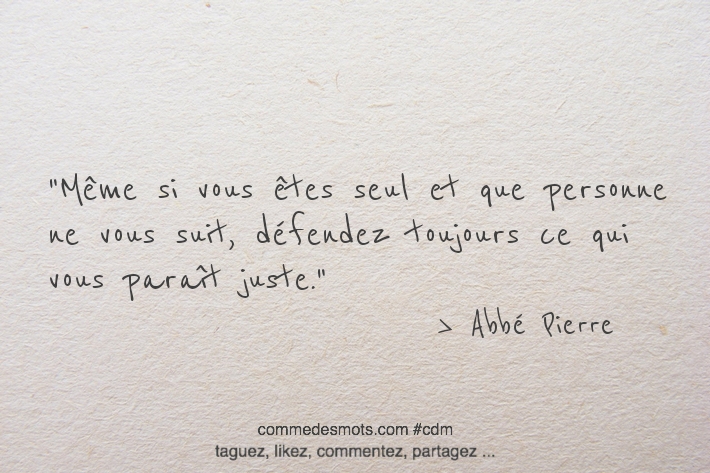 "Même si vous êtes seul et que personne
ne vous suit, défendez toujours ce qui
vous paraît juste."
> Abbé Pierre
commedesmots.com #cdm
taguez, likez, commentez, partagez ...